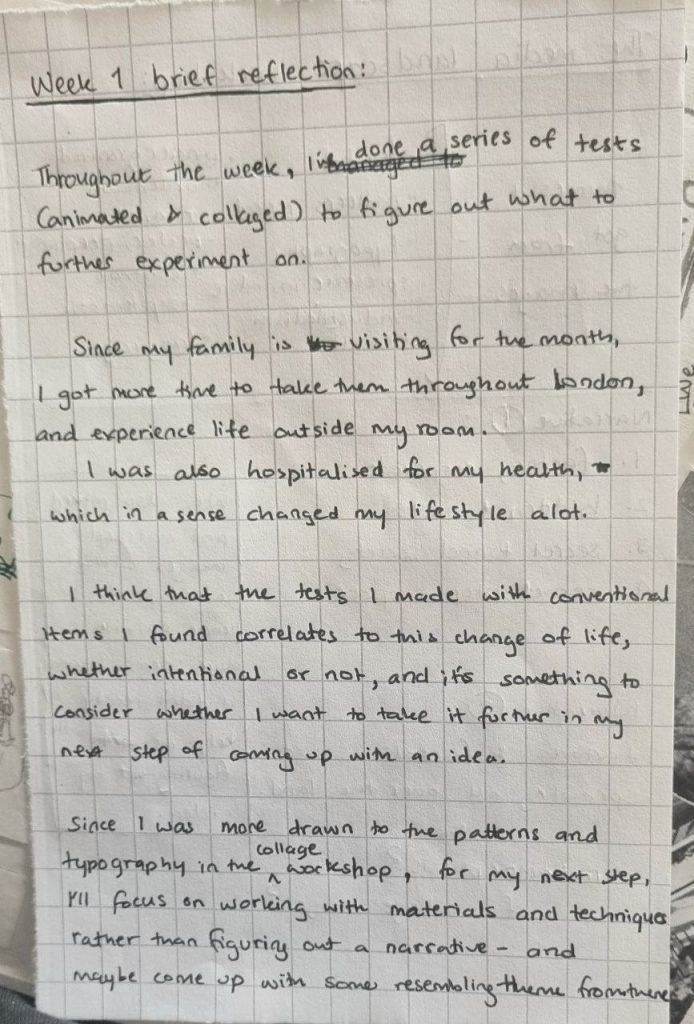 Week 1 brief reflection:
Throughout the week, I've done a series of tests
(animated & collaged) to figure out what to
further experiment on.
Since my family is visiting for the month,
I got more time to take them throughout London,
and experience life outside my room.
I was also hospitalised for my health,
which in a sense changed my lifestyle alot.
I think that the tests I made with conventional
items I found correlates to this change of life,
whether intentional or not, and it's something to
consider whether I want to take it further in my
next step of coming up with an idea.
Since I was more drawn to the patterns and
typography in the collage workshop, for my next step,
I'll focus on working with materials and techniques
rather than figuring out a narrative - and
maybe come up with some resembling theme from there